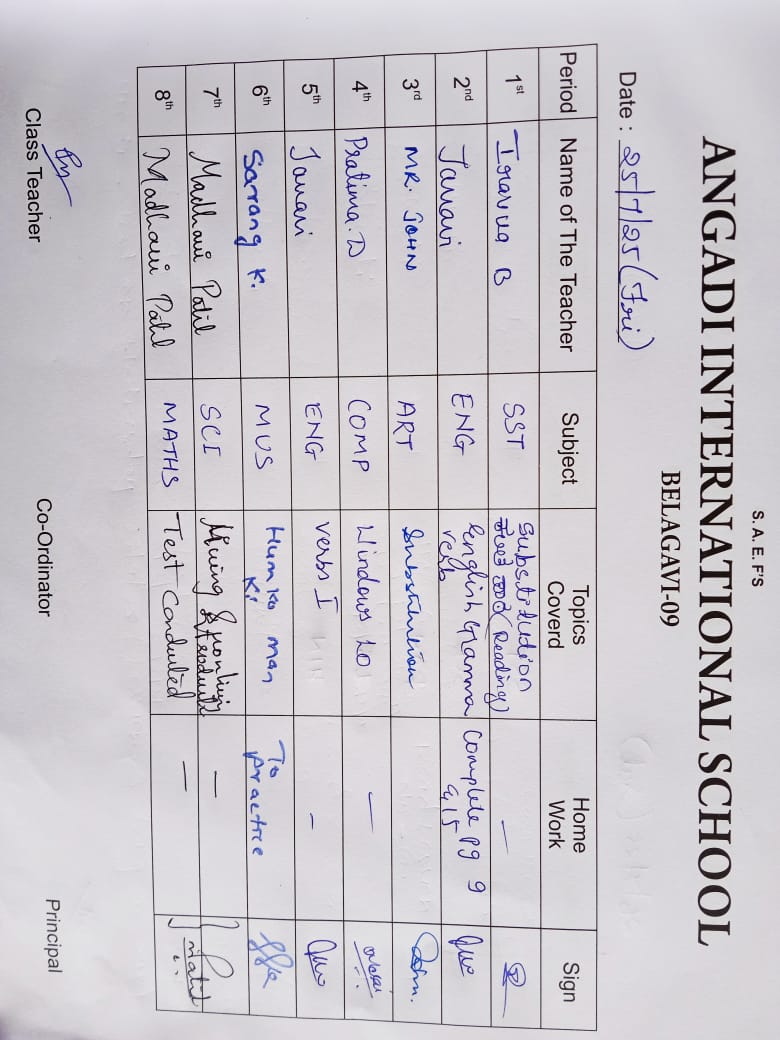 S. A. E. F'S
ANGADI INTERNATIONAL SCHOOL
BELAGAVI-09
Date : 25/7/25 (Fri)
Period Name of The Teacher Subject Topics Coverd Home Work Sign
1st B SST Substitution (Reading) —
2nd Janavi ENG English Gramma verb Complete pg 9
3rd MR. JOHN ART Substitution
4th Pratima. D COMP Windows 10 —
5th Janavi ENG verbs I –
6th Sarang K. MUS Humko man Ki To practice
7th Madhavi Patil SCI —
8th Madhavi Patil MATHS Test Conducted —
Class Teacher Co-Ordinator Principal